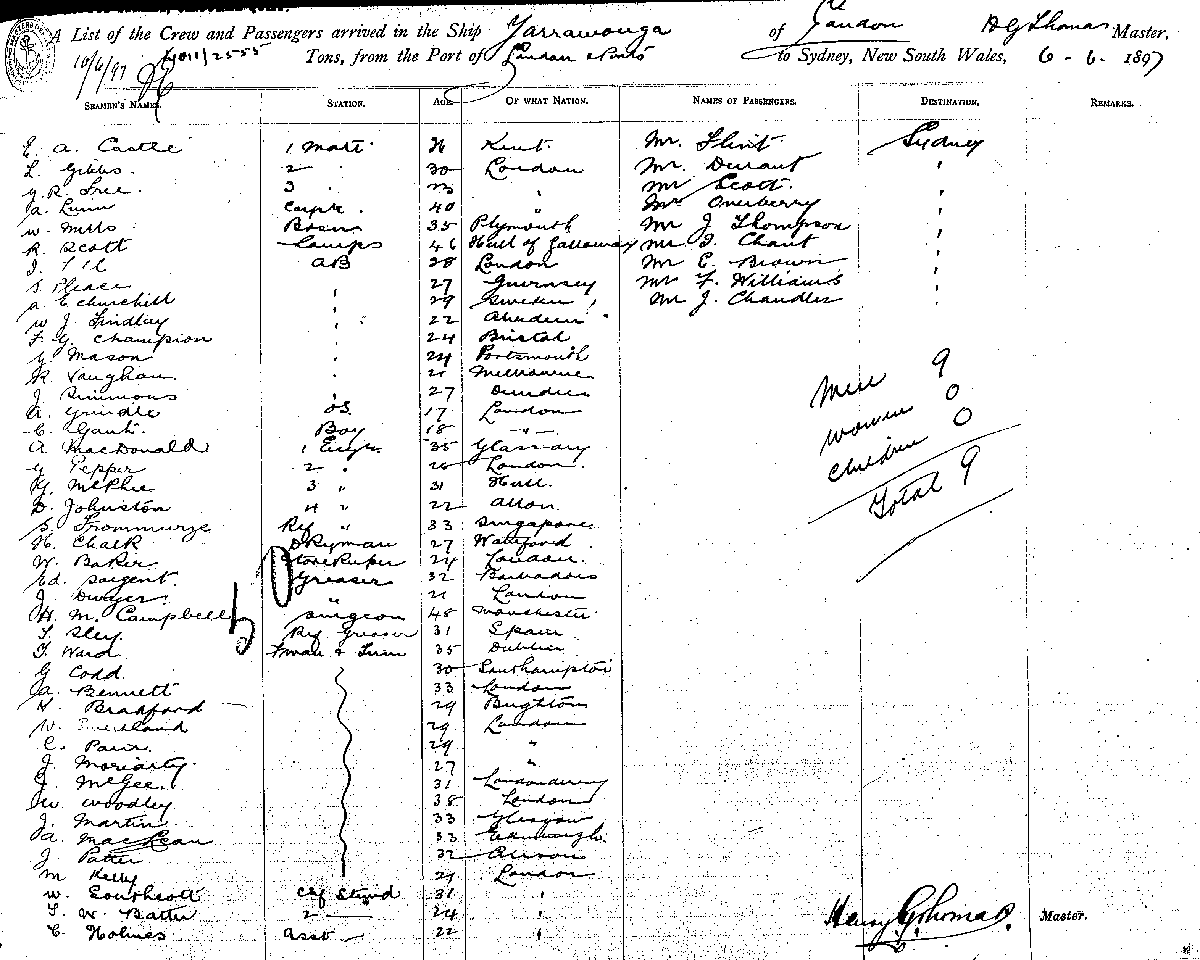 A List of the Crew and Passengers arrived in the Ship Yarrawonga of London H G Thomas Master.
10/6/97 Tons, from the Port of London & Ports to Sydney, New South Wales, 6 - 6 - 1897
Seamen's Names. Station. Age. Of what Nation. Names of Passengers. Destination. Remarks.
E. A. Castle 1 Mate 36 Kent Mr. Flint Sydney
L. Gibbs 2 " 30 London Mr. Durant "
G. R. Free. 3 " 23 " Mr Scott. "
A. Lunn Carptr. 40 " Mr Overberry "
W. Mills Bosn 35 Plymouth Mr J Thompson "
R. Scott Lamps 46 Mull of Galloway Mr. I. Chant "
J. AB 28 London Mr E. Brown "
S. Please " 27 Guernsey Mr F. Williams "
A. E Churchill " 29 Sweden Mr J. Chandler "
W J. Findlay " 22 Aberdeen
F. G. Champion " 24 Bristol
G. Mason " 24 Portsmouth
R. Vaughan. " 21 Melbourne
J. Simmons " 27 Dundee
A. Grindle OS. 17 London
C. Gant. Boy 18 - " -
A MacDonald 1 Engr 35 Glasgow
G Pepper 2 " 26 London.
G. McPhee 3 " 31 Hull.
D. Johnston 4 " 22 Alloa
S. Frommurze Ref " 33 Singapore
H. Chalk Dkyman 27 Watford
W. Baker Storekeeper 24 London.
Ed. Sargent. Greaser 32 Barbadoes
J. Dwyer. " 21 London
H. M. Campbell Surgeon 48 Manchester
T. Sley. Ref Greaser 31 Spain
T. Ward Fman & Trim 35 Dublin
G Codd. 30 Southampton
A. Bennett 33 London
H. Bradford 29 Brighton
W. 29 London
C. Parr. 29 "
J. Moriarty. 27 "
J. McGee. 31 Londonderry
W Woodley 38 London
J. Martin 33 Glasgow
A. MacLean 33 Edinburgh.
J. Patter 32
M Kelly 21 London
W. Southcott Chf Stewd 31 "
T. W. Batter 2 24 "
C. Holmes Asst 22 "
Men 9
Women 0
Children 0
Total 9
Henry G Thomas. Master.